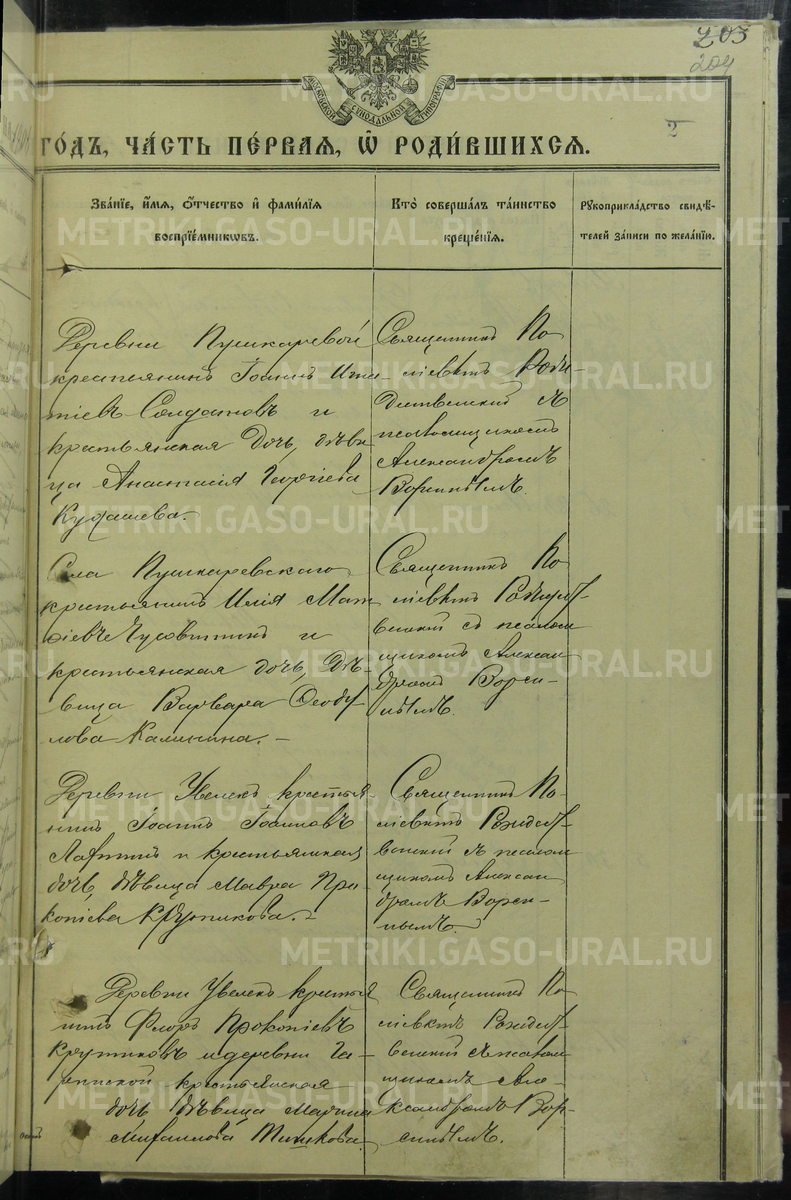 203
204
МОСКОВСКОЙ СѴНОДАЛЬНОЙ ТИПОГРАФІИ
2
ГОДЪ, ЧАСТЬ ПЕРВАЯ, Ѽ РОДИВШИХСЯ.
Званїе, имя, отчество и фамилїя
воспрїемниковъ.
Кто совершалъ таинство
крещенїя.
Рукоприкладство свидѣ-
телей записи по желанїю.
Деревни Пушкаревой
крестьянинъ Іоаннъ Игна-
тіевъ Солдановъ и
крестьянская дочь, дѣви-
ца Анастасія Георгіева
Священникъ По-
ліевктъ Рожде-
ственскій съ
псаломщикомъ
Александромъ
Села Пушкаревскаго
крестьянинъ Илія Мат-
ѳіевъ и
крестьянская дочь, дѣ-
вица Варвара Ѳеоду-
лова Калинина.
Священникъ По-
ліевктъ Рождест-
венскій съ псалом-
щикомъ Алексан-
дромъ
Деревни Увелекъ крестья-
нинъ Іоаннъ Іоанновъ
Лаптинъ и крестьянская
дочь, дѣвица Мавра Про-
копіева Крутикова.
Священникъ По-
ліевктъ Рождест-
венскій съ псалом-
щикомъ Алексан-
дромъ
Деревни Увелекъ крестья-
нинъ Флоръ Прокопіевъ
Крутиковъ и деревни
крестьянская
дочь дѣвица Марина
Михаилова
Священникъ По-
ліевктъ Рождест-
венскій съ псалом-
щикомъ Але-
ксандромъ
METRIKI.GASO-URAL.RU